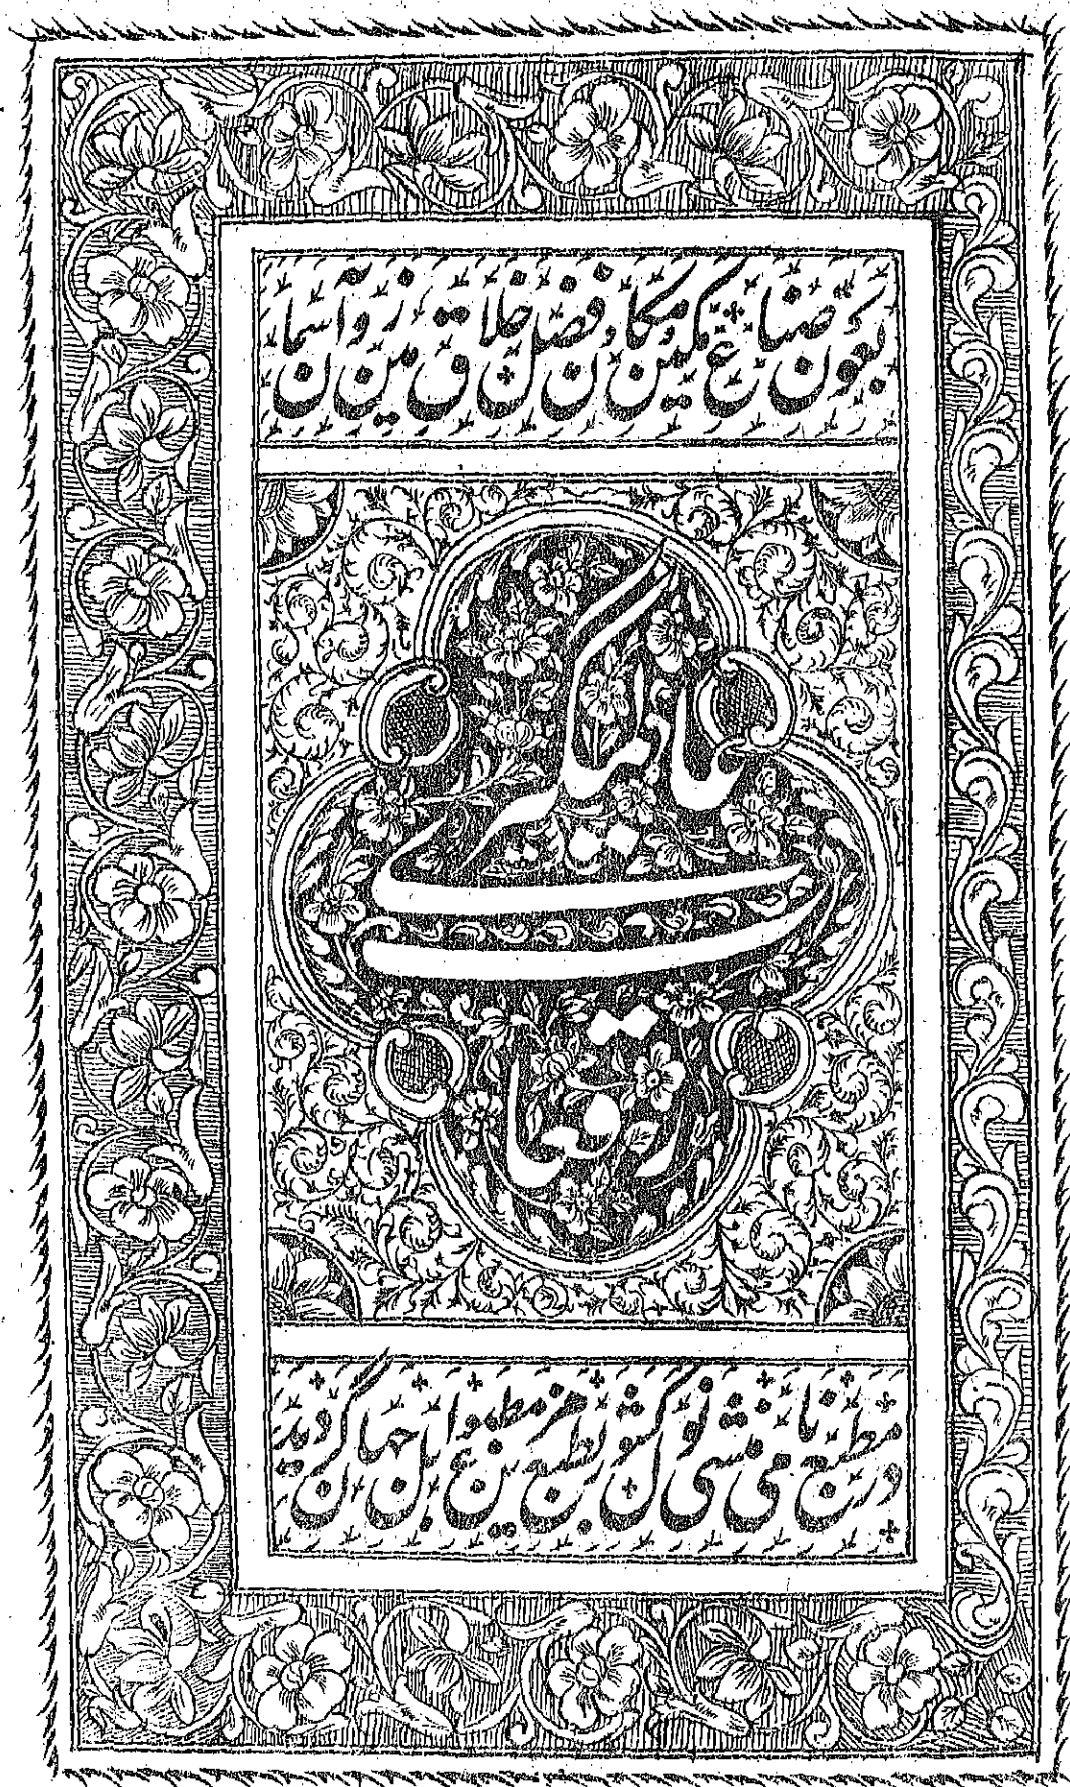 بعون صناع مکین و مکان و فضل خلاق زمین و آسمان
رقعات عالمگیری
در مطبع نامی منشی نولکشور بطبع مزین مطبوع جهان گردید